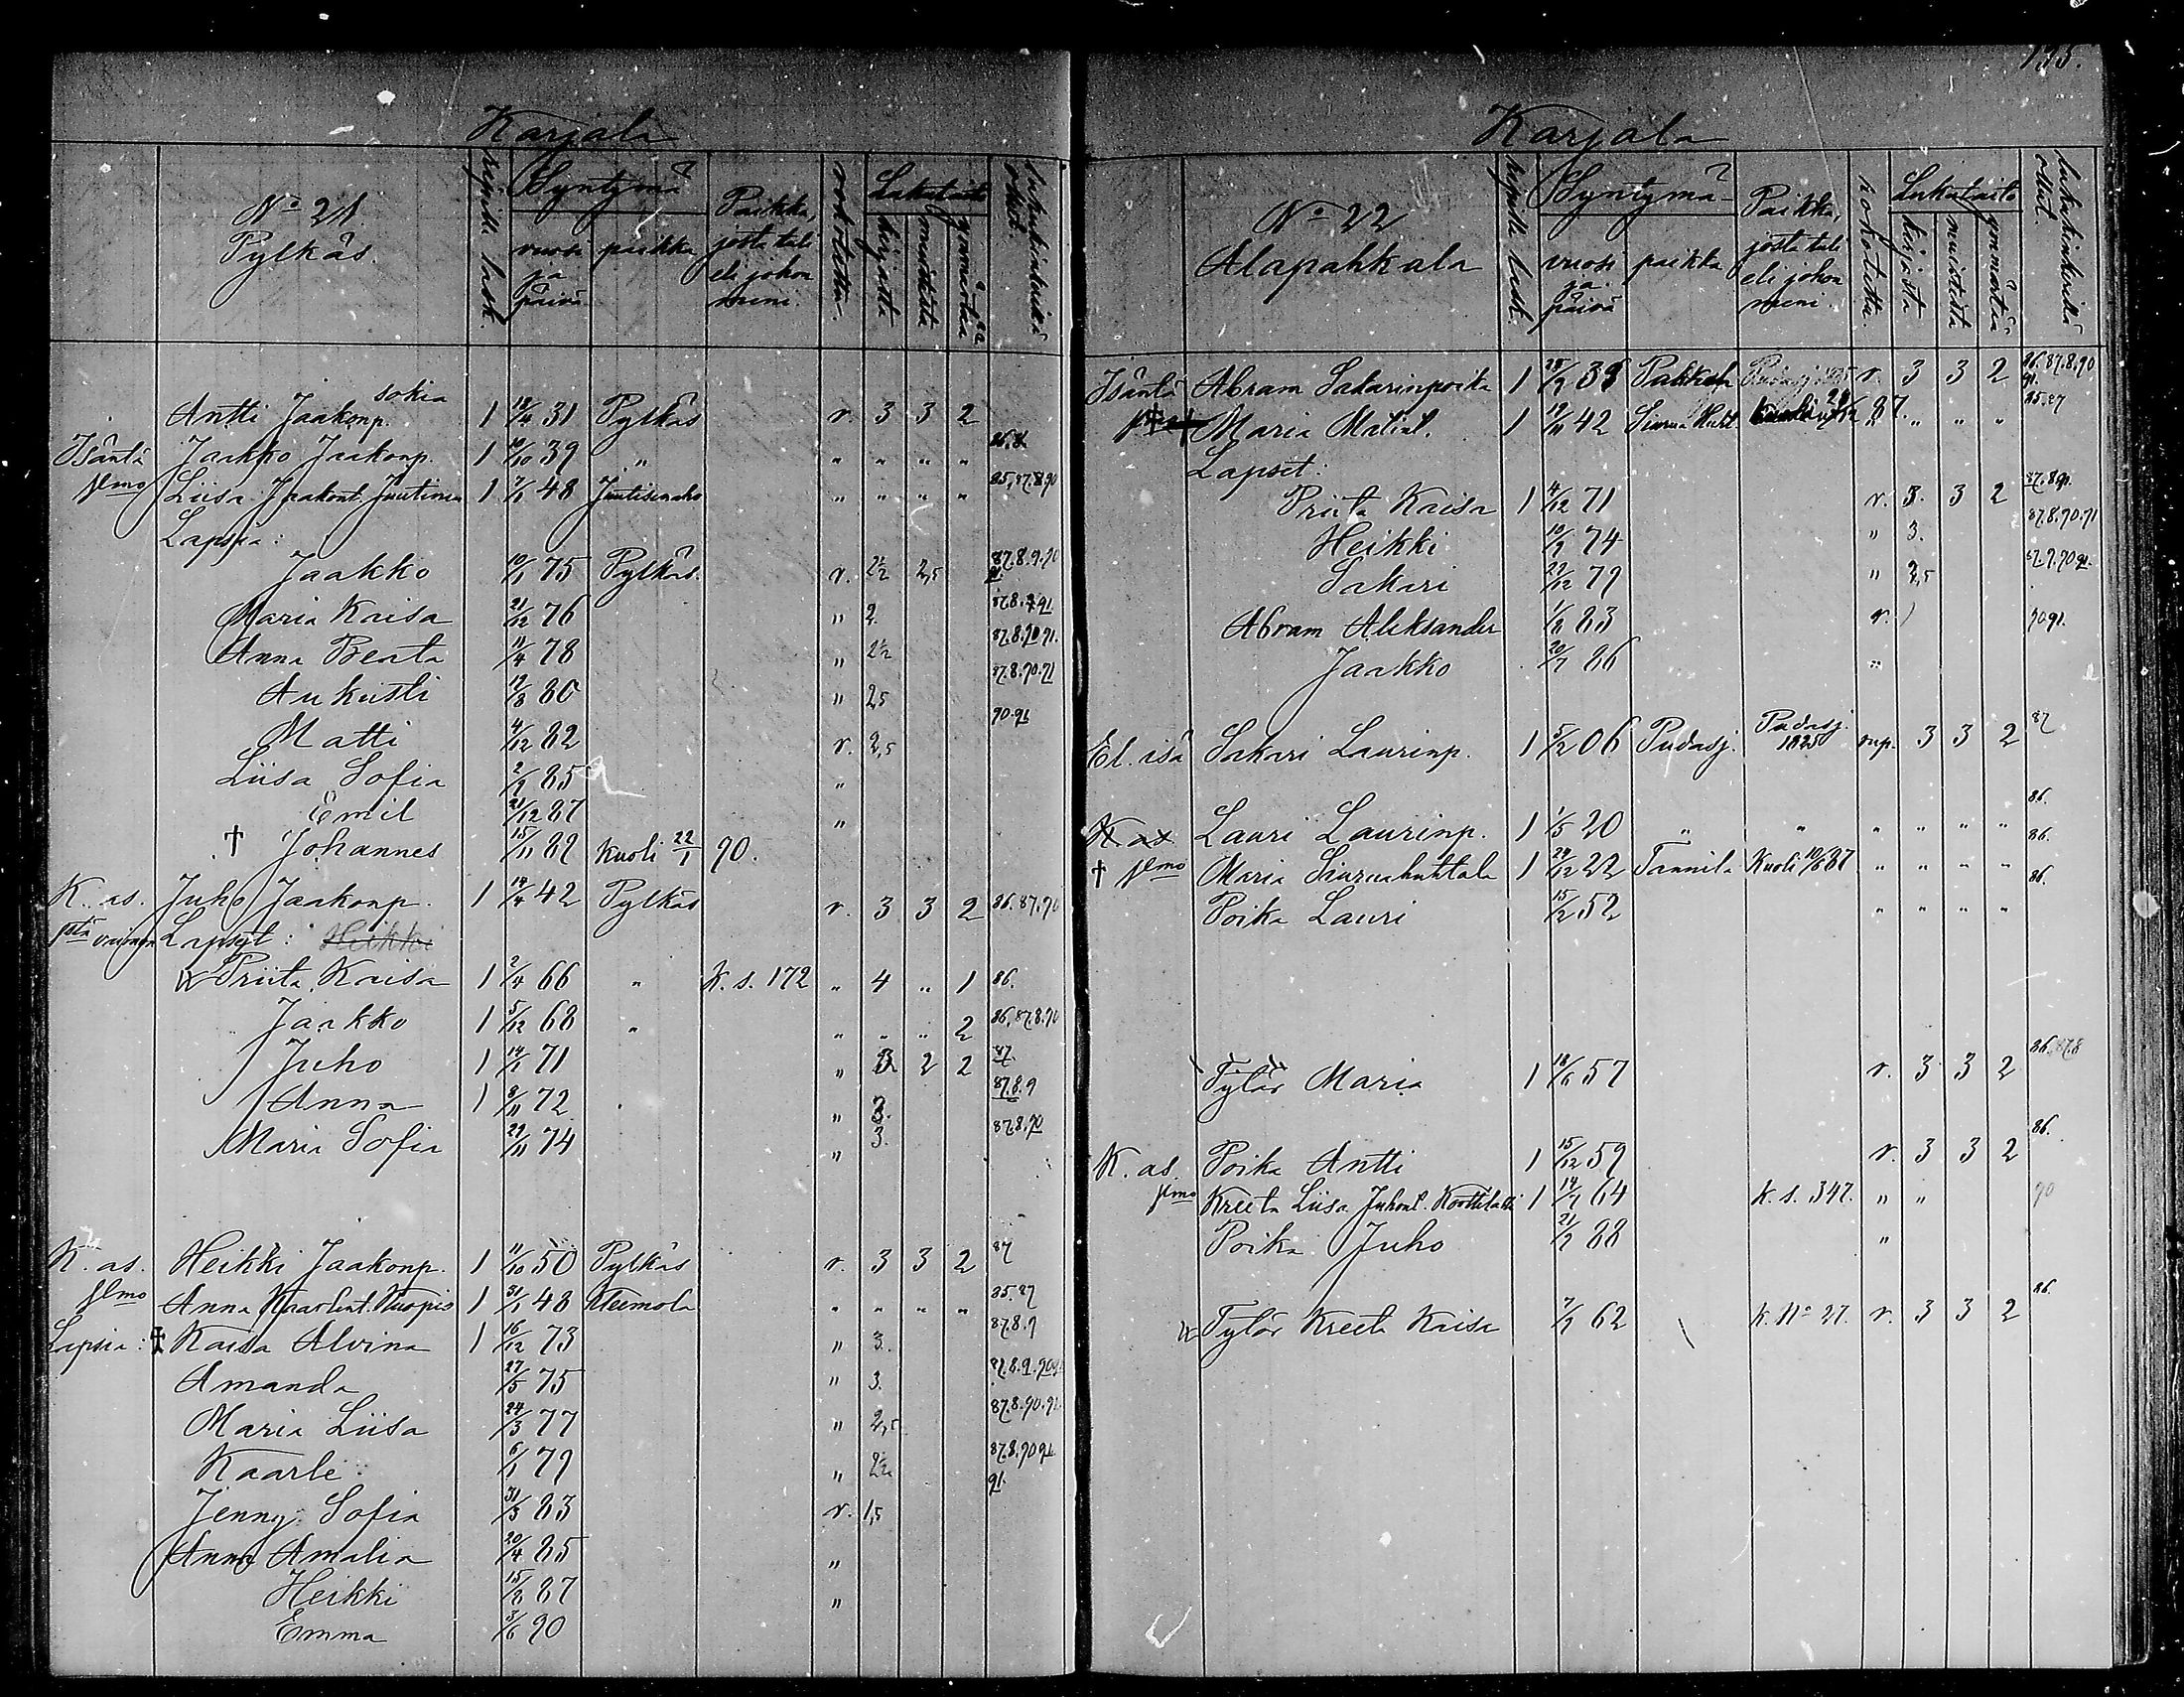 175.
Karjala
No 21.
Pylkäs.
ripillä lask.
Syntymä
vuosi ja päivä
paikka
Paikka, josta tuli eli johon meni.
rokotettu.
Lukutaito
kirjasta
muistista
ymmärtää
lukukinkerillä ollut.
sokia
Antti Jaakonp. 1 18/4 31 Pylkäs r. 3 3 2
Isäntä Jaakko Jaakonp. 1 10/10 39 " " " " "
vmo Liisa Jaakont. Juutinen 1 7/1 48 Juutisenaho " " " " 85,87.8.90
Lapsia:
Jaakko 10/1 75 Pylkäs. r. 2½ 2,5 87.8.9.90
Maria Kaisa 21/12 76 " 2
Anna Beata 11/4 78 " 2½ 87.8.90.91.
Aukusti 19/8 80 " 2,5 87.8.90.91
Matti 4/12 82 r. 2,5 90.91
Liisa Sofia 2/9 85 "
Emil 21/12 87 "
† Johannes 15/11 89 Kuoli 22/1 90.
K. as. Juho Jaakonp. 1 14/4 42 Pylkäs r. 3 3 2 86.87.90
Lapset: Heikki
Priita Kaisa 1 2/4 66 " K. s. 172 " 4 " 1 86.
Jaakko 1 5/12 68 " " " " 2 86,87.8.90
Juho 1 14/1 71 " 2 2 87.
Anna 1 8/11 72 " 3. 87.8.9
Maria Sofia 29/11 74 " 3. 87.8.90
K. as. Heikki Jaakonp. 1 11/10 50 Pylkäs r. 3 3 2 87
vmo Anna Kaarlent. Kuopus 1 31/1 48 Kleemola " " " " 85.87
Lapsia: † Kaisa Alvina 1 16/12 73 " 3. 87.8.9
Amanda 27/5 75 " 3. 87.8.9.90.91
Maria Liisa 24/3 77 " 2,5 87.8.90.91.
Kaarle 6/1 79 " 2½ 87.8.90.91
91.
Jenny Sofia 31/3 83 r. 1,5
Anna Amalia 20/4 85 "
Heikki 15/8 87 "
Emma 3/6 90
Karjala
No 22
Alapahkala
ripillä lask.
Syntymä
vuosi ja päivä
paikka
Paikka, josta tuli eli johon meni.
rokotettu.
Lukutaito
kirjasta
muistista
ymmärtää
lukukinkerillä ollut.
Isäntä Abram Sakarinpoika 1 25/9 35 Pahkala r. 3 3 2 86.87.8.90
91.
Maria Matint. 1 19/11 42 Siurua Huht. 87. " " " 85.87
Lapset:
Priita Kaisa 1 4/12 71 r. 3. 3 2 87.8.90.
Heikki 10/9 74 " 3. 87.8.90.91
Sakari 22/12 79 " 2,5 87.9.90.91.
Abram Aleksander 1/8 83 r. 90 91.
Jaakko 20/7 86 "
El. isä Sakari Laurinp. 1 5/2 06 Pudasj. Pudasj. 1825 rup. 3 3 2 87
K as Lauri Laurinp. 1 1/5 20 " " " " " " 86.
† vmo Maria Siuruahuhtala 1 29/12 22 Tannila Kuoli 10/8 87 " " " " 86.
Poika Lauri 15/2 52 " " " " 86.
Tytär Maria 1 18/6 57 r. 3 3 2 86.87.8
K. as. Poika Antti 1 15/12 59 r. 3 3 2 86.
vmo Kreeta Liisa Juhont. 1 14/7 64 K. s. 347. " " 90
Poika Juho 21/9 88 "
Tytär Kreeta Kaisa 7/9 62 K. No 27. r. 3 3 2 86.